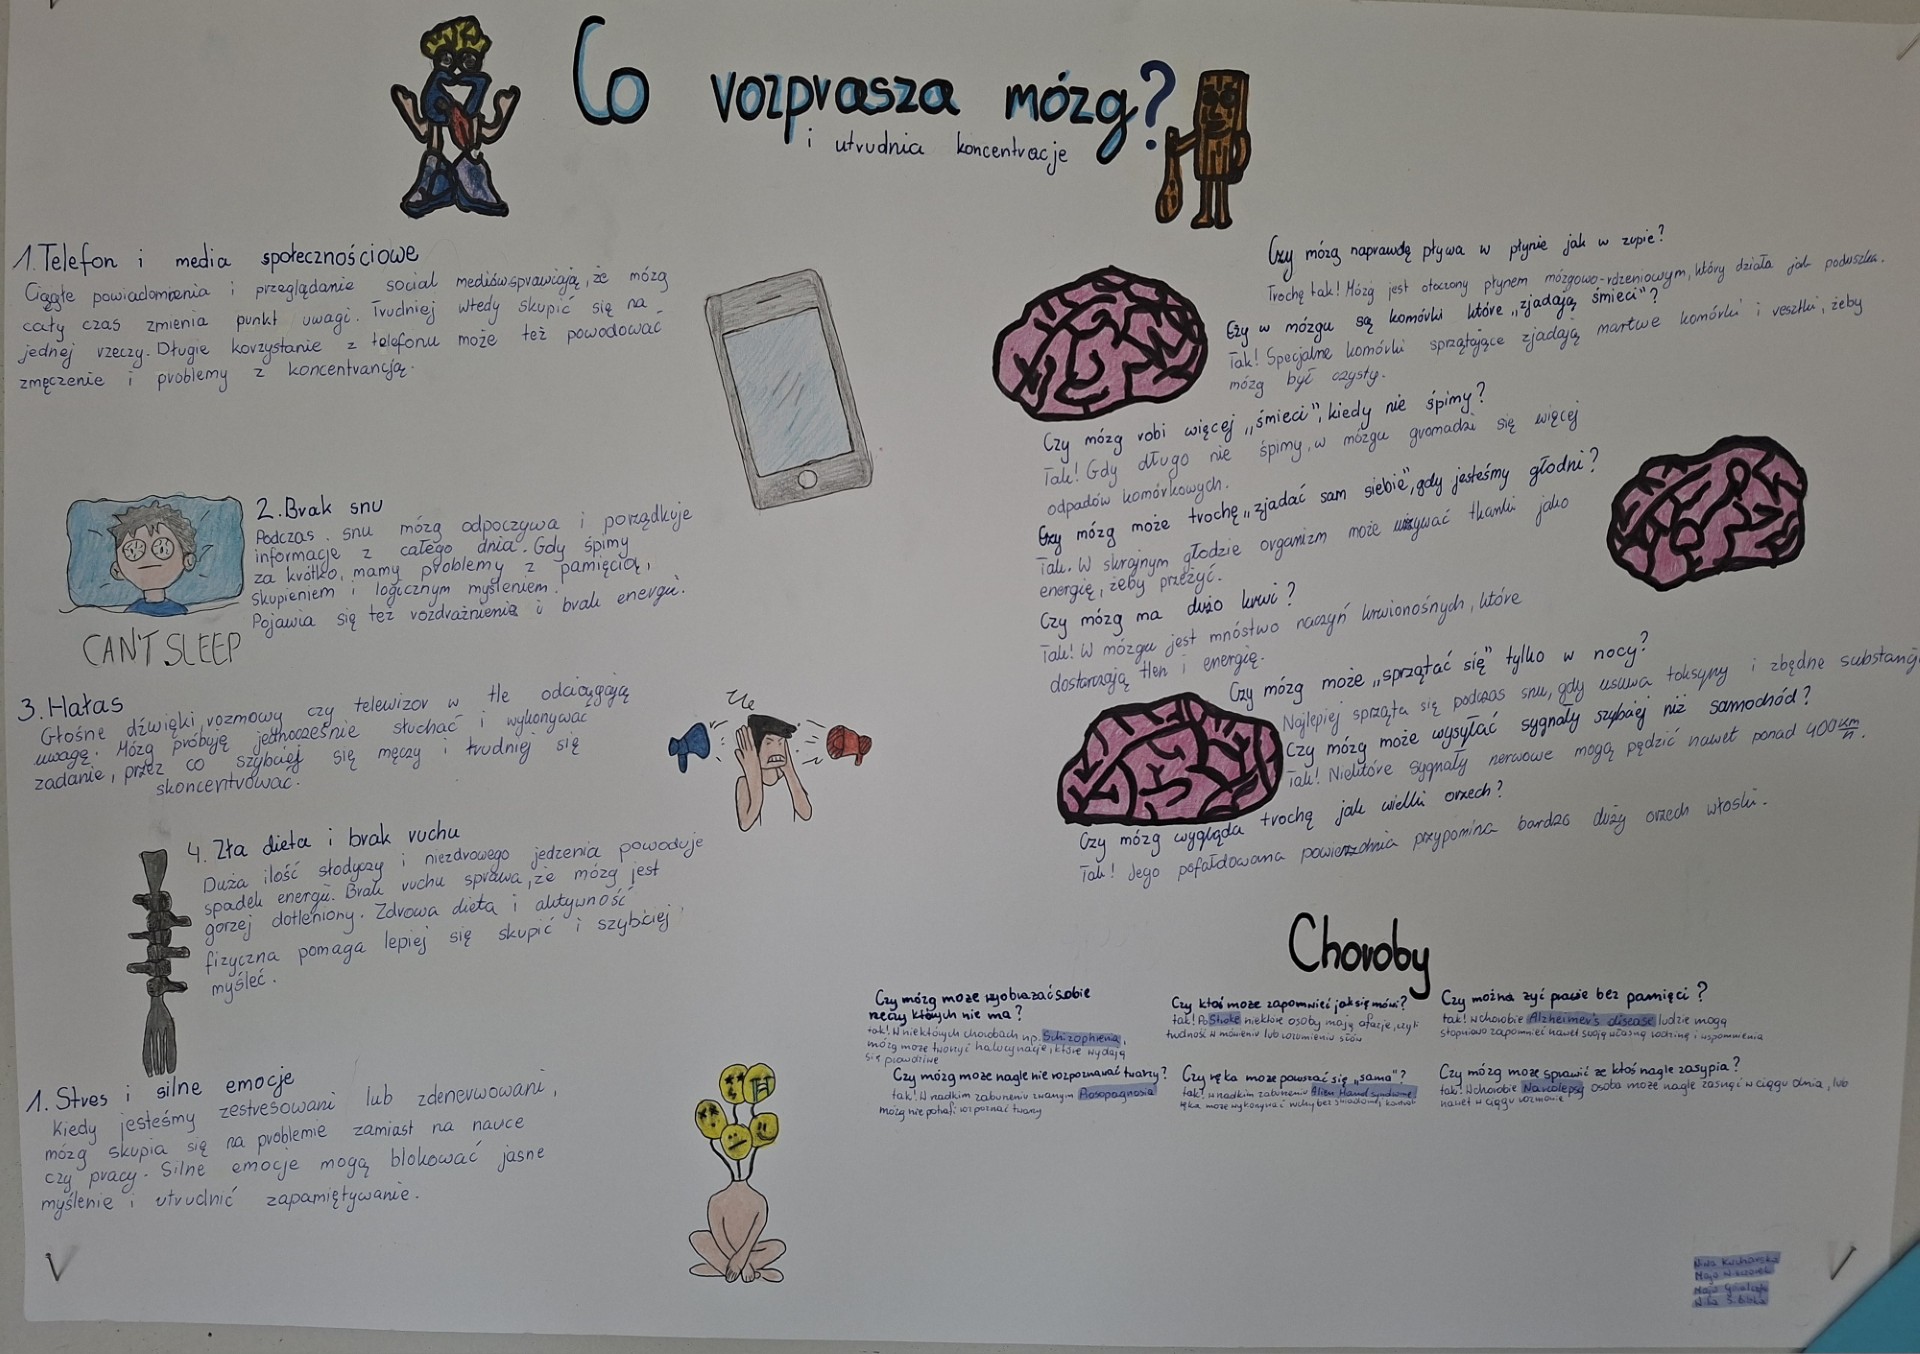 Co rozprasza mózg?
i utrudnia koncentracje
1. Telefon i media społecznościowe
Ciągłe powiadomienia i przeglądanie social mediów sprawiają, że mózg
cały czas zmienia punkt uwagi. Trudniej wtedy skupić się na
jednej rzeczy. Długie korzystanie z telefonu może też powodować
zmęczenie i problemy z koncentrancją.
2. Brak snu
Podczas snu mózg odpoczywa i porządkuje
informacje z całego dnia. Gdy śpimy
za krótko, mamy problemy z pamięcią,
skupieniem i logicznym myśleniem.
Pojawia się też rozdrażnienie i brak energii.
CAN'T SLEEP
3. Hałas
Głośne dźwięki, rozmowy czy telewizor w tle odciągają
uwagę. Mózg próbuję jednocześnie słuchać i wykonywać
zadanie, przez co szybciej się męczy i trudniej się
skoncentrować.
4. Zła dieta i brak ruchu
Duża ilość słodyczy i niezdrowego jedzenia powoduje
spadek energii. Brak ruchu sprawa, że mózg jest
gorzej dotleniony. Zdrowa dieta i aktywność
fizyczna pomaga lepiej się skupić i szybciej
myśleć.
1. Stres i silne emocje
Kiedy jesteśmy zestresowani lub zdenerwowani,
mózg skupia się na problemie zamiast na nauce
czy pracy. Silne emocje mogą blokować jasne
myślenie i utrudnić zapamiętywanie.
Czy mózg naprawdę pływa w płynie jak w zupie?
Trochę tak! Mózg jest otoczony płynem mózgowo-rdzeniowym, który działa jak poduszka.
Czy w mózgu są komórki które „zjadają śmieci"?
Tak! Specjalne komórki sprzątające zjadają martwe komórki i resztki, żeby
mózg był czysty.
Czy mózg robi więcej „śmieci", kiedy nie śpimy?
Tak! Gdy długo nie śpimy, w mózgu gromadzi się więcej
odpadów komórkowych.
Czy mózg może trochę „zjadać sam siebie", gdy jesteśmy głodni?
Tak. W skrajnym głodzie organizm może używać tkanki jako
energię, żeby przeżyć.
Czy mózg ma dużo krwi?
Tak! W mózgu jest mnóstwo naczyń krwionośnych, które
dostarczają tlen i energię.
Czy mózg może „sprzątać się" tylko w nocy?
Najlepiej sprząta się podczas snu, gdy usuwa toksyny i zbędne substancje
Czy mózg może wysyłać sygnały szybciej niż samochód?
Tak! Niektóre sygnały nerwowe mogą pędzić nawet ponad 400 km/h.
Czy mózg wygląda trochę jak wielki orzech?
Tak! Jego pofałdowana powierzchnia przypomina bardzo duży orzech włoski.
Choroby
Czy mózg może wyobrażać sobie
rzeczy których nie ma?
tak! W niektórych chorobach np. Schizophrenia,
mózg może tworzyć halucynacje, które wydają
się prawdziwe
Czy mózg może nagle nie rozpoznawać twarzy?
tak! W rzadkim zaburzeniu zwanym Prosopagnosia
mózg nie potrafi rozpoznać twarzy
Czy ktoś może zapomnieć jak się mówi?
tak! Po Stroke niektóre osoby mają afazje, czyli
trudność w mówieniu lub rozumieniu słów
Czy ręka może poruszać się „sama"?
tak! w rzadkim zaburzeniu Alien Hand syndrome,
ręka może wykonywać ruchy bez świadomej kontroli
Czy można żyć prawie bez pamięci?
tak! W chorobie Alzheimer's disease ludzie mogą
stopniowo zapomnieć nawet swoją własną rodzinę i wspomnienia
Czy mózg może sprawić że ktoś nagle zasypia?
tak! W chorobie Narcolepsy osoba może nagle zasnąć w ciągu dnia, lub
nawet w ciągu rozmowie
Nina Kucharska
Maja
Maja